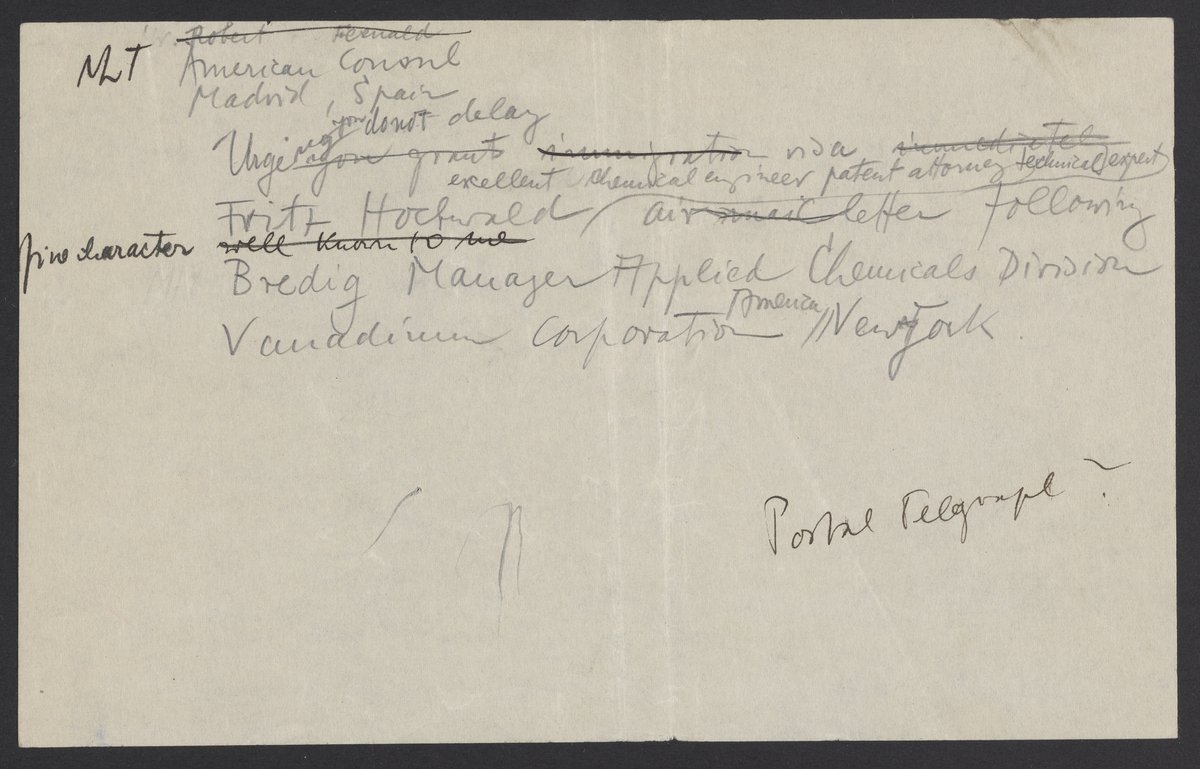 Robert Fernald
NLT American Consul
Madrid, Spain
you do not delay
Urge you grant immigration visa immediately
excellent chemical engineer patent attorney technical expert
Fritz Hochwald air mail letter following
fine character well known to me
Bredig Manager Applied Chemicals Division
America
Vanadium Corporation / New York
Postal Telegraph ?